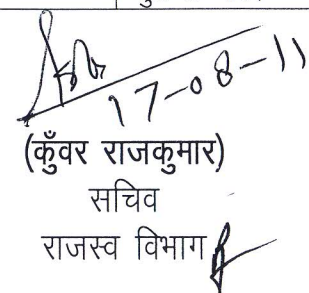 17-08-11
(कुँवर राजकुमार)
सचिव
राजस्व विभाग